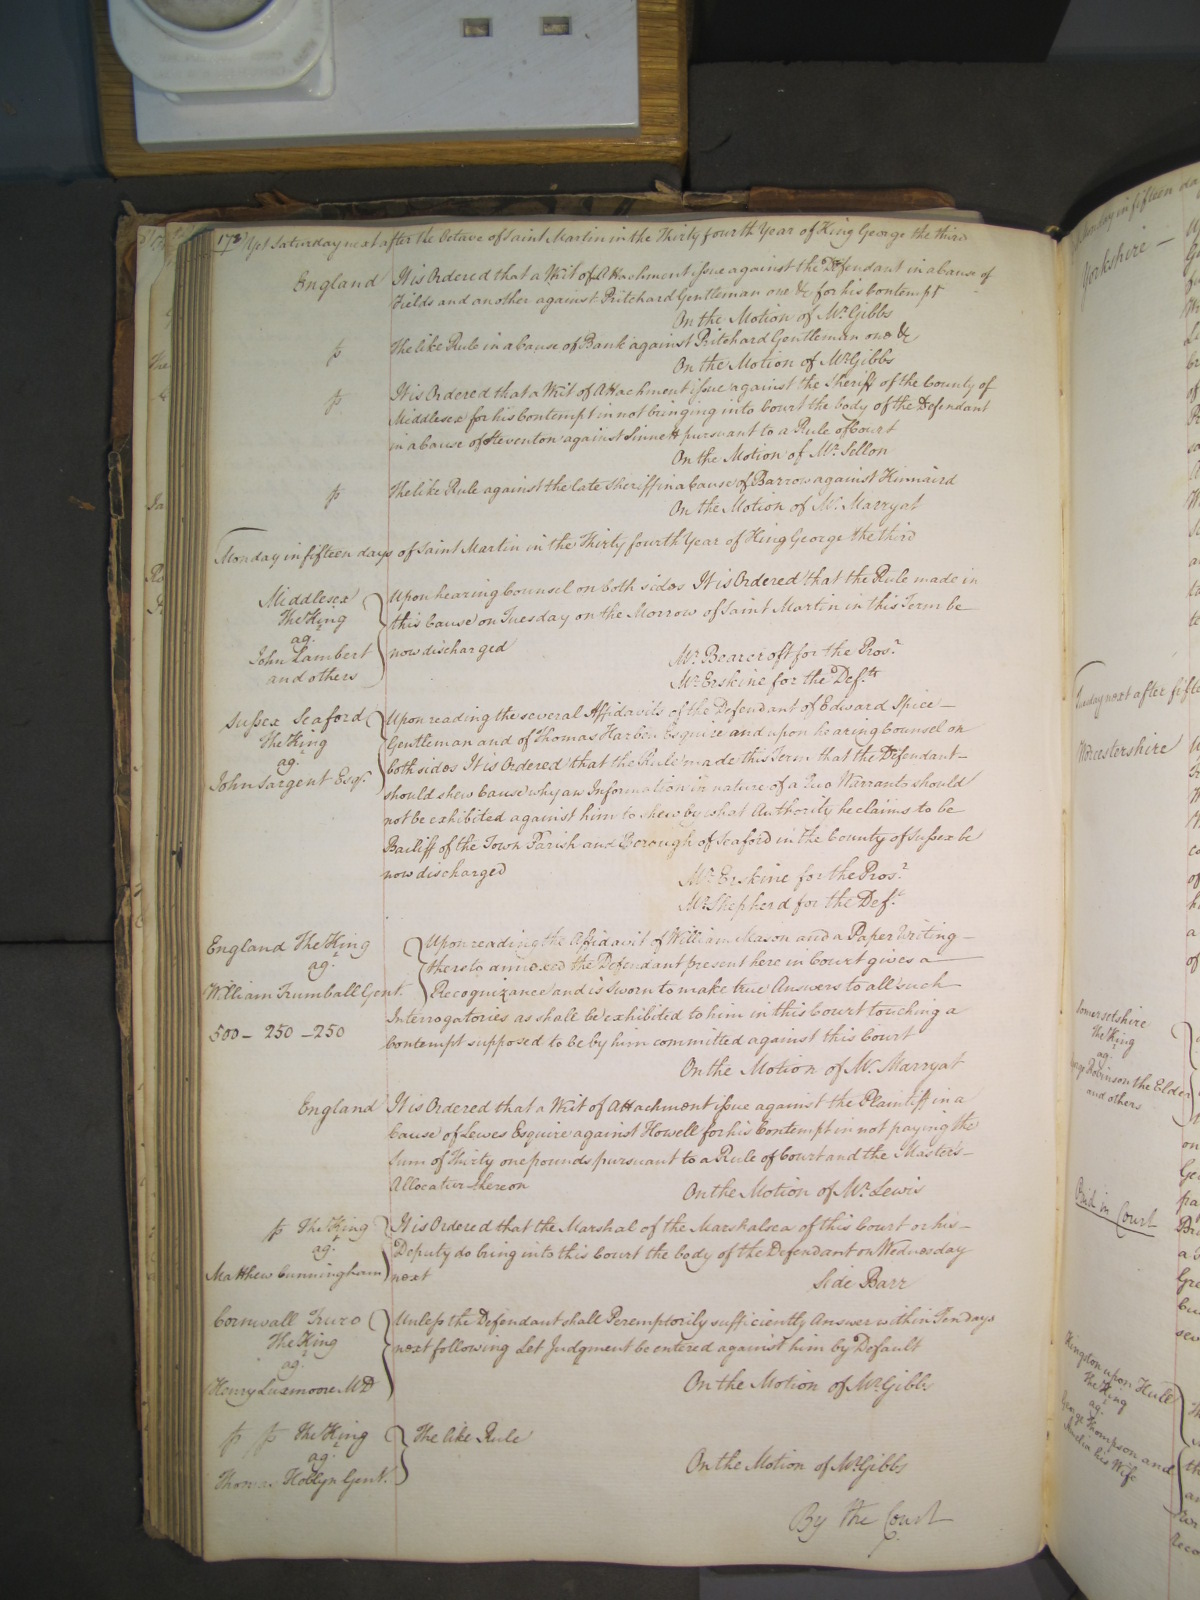 172 Yet Saturday next after the Octave of Saint Martin in the Thirty fourth Year of King George the third
England It is Ordered that a Writ of Attachment issue against the Defendant in a Cause of
Fields and another against Pritchard Gentleman one &c for his Contempt
On the Motion of Mr. Gibbs
p The like Rule in a Cause of Bank against Pritchard Gentleman one &c
On the Motion of Mr. Gibbs
p It is Ordered that a Writ of Attachment issue against the Sheriff of the County of
Middlesex for his Contempt in not bringing into Court the body of the Defendant
in a Cause of Steventon against Sinnett pursuant to a Rule of Court
On the Motion of Mr. Sellon
p The like Rule against the late Sheriff in a Cause of Barrow against Kinnaird
On the Motion of Mr. Marryat
Monday in fifteen days of Saint Martin in the Thirty fourth Year of King George the third
Middlesex
The King
agt.
John Lambert
and others
Upon hearing Counsel on both sides It is Ordered that the Rule made in
this Cause on Tuesday on the Morrow of Saint Martin in this Term be
now discharged
Mr. Bearcroft for the Pros.r
Mr. Erskine for the Def.ts
Sussex Seaford
The King
agt.
John Sargent Esqr.
Upon reading the several Affidavits of the Defendant of Edward Spice
Gentleman and of Thomas Harben Esquire and upon hearing Counsel on
both sides It is Ordered that the Rule made this Term that the Defendant
should shew Cause why an Information in nature of a Quo Warranto should
not be exhibited against him to shew by what Authority he claims to be
Bailiff of the Town Parish and Borough of Seaford in the County of Sussex be
now discharged
Mr. Erskine for the Pros.r
Mr. Shepherd for the Def.t
England The King
agt.
William Trumball Gent.
500 - 250 - 250
Upon reading the Affidavit of William Mason and a Paper Writing
thereto annexed the Defendant present here in Court gives a
Recognizance and is Sworn to make true Answers to all such
Interrogatories as shall be exhibited to him in this Court touching a
Contempt supposed to be by him committed against this Court
On the Motion of Mr. Marryat
England It is Ordered that a Writ of Attachment issue against the Plaintiff in a
Cause of Lewes Esquire against Howell for his Contempt in not paying the
Sum of Thirty one pounds pursuant to a Rule of Court and the Master's
Allocatur thereon
On the Motion of Mr. Lewis
p The King
agt.
Matthew Cunningham
It is Ordered that the Marshal of the Marshalsea of this Court or his
Deputy do bring into this Court the body of the Defendant on Wednesday
next
Side Barr
Cornwall Truro
The King
agt.
Henry Luxmoore MD
Unless the Defendant shall Peremptorily sufficiently Answer within Ten days
next following Let Judgment be entered against him by Default
On the Motion of Mr. Gibbs
p p The King
agt.
Thomas Gent.
The like Rule
On the Motion of Mr. Gibbs
By the Court
Monday in fifteen da
Yorkshire
Tuesday next after fifte
Worcestershire
Somersetshire
The King
agt.
George Robinson the Elder
and others
Paid in Court
Kingston upon Hull
The King
agt.
George Thompson and
his Wife